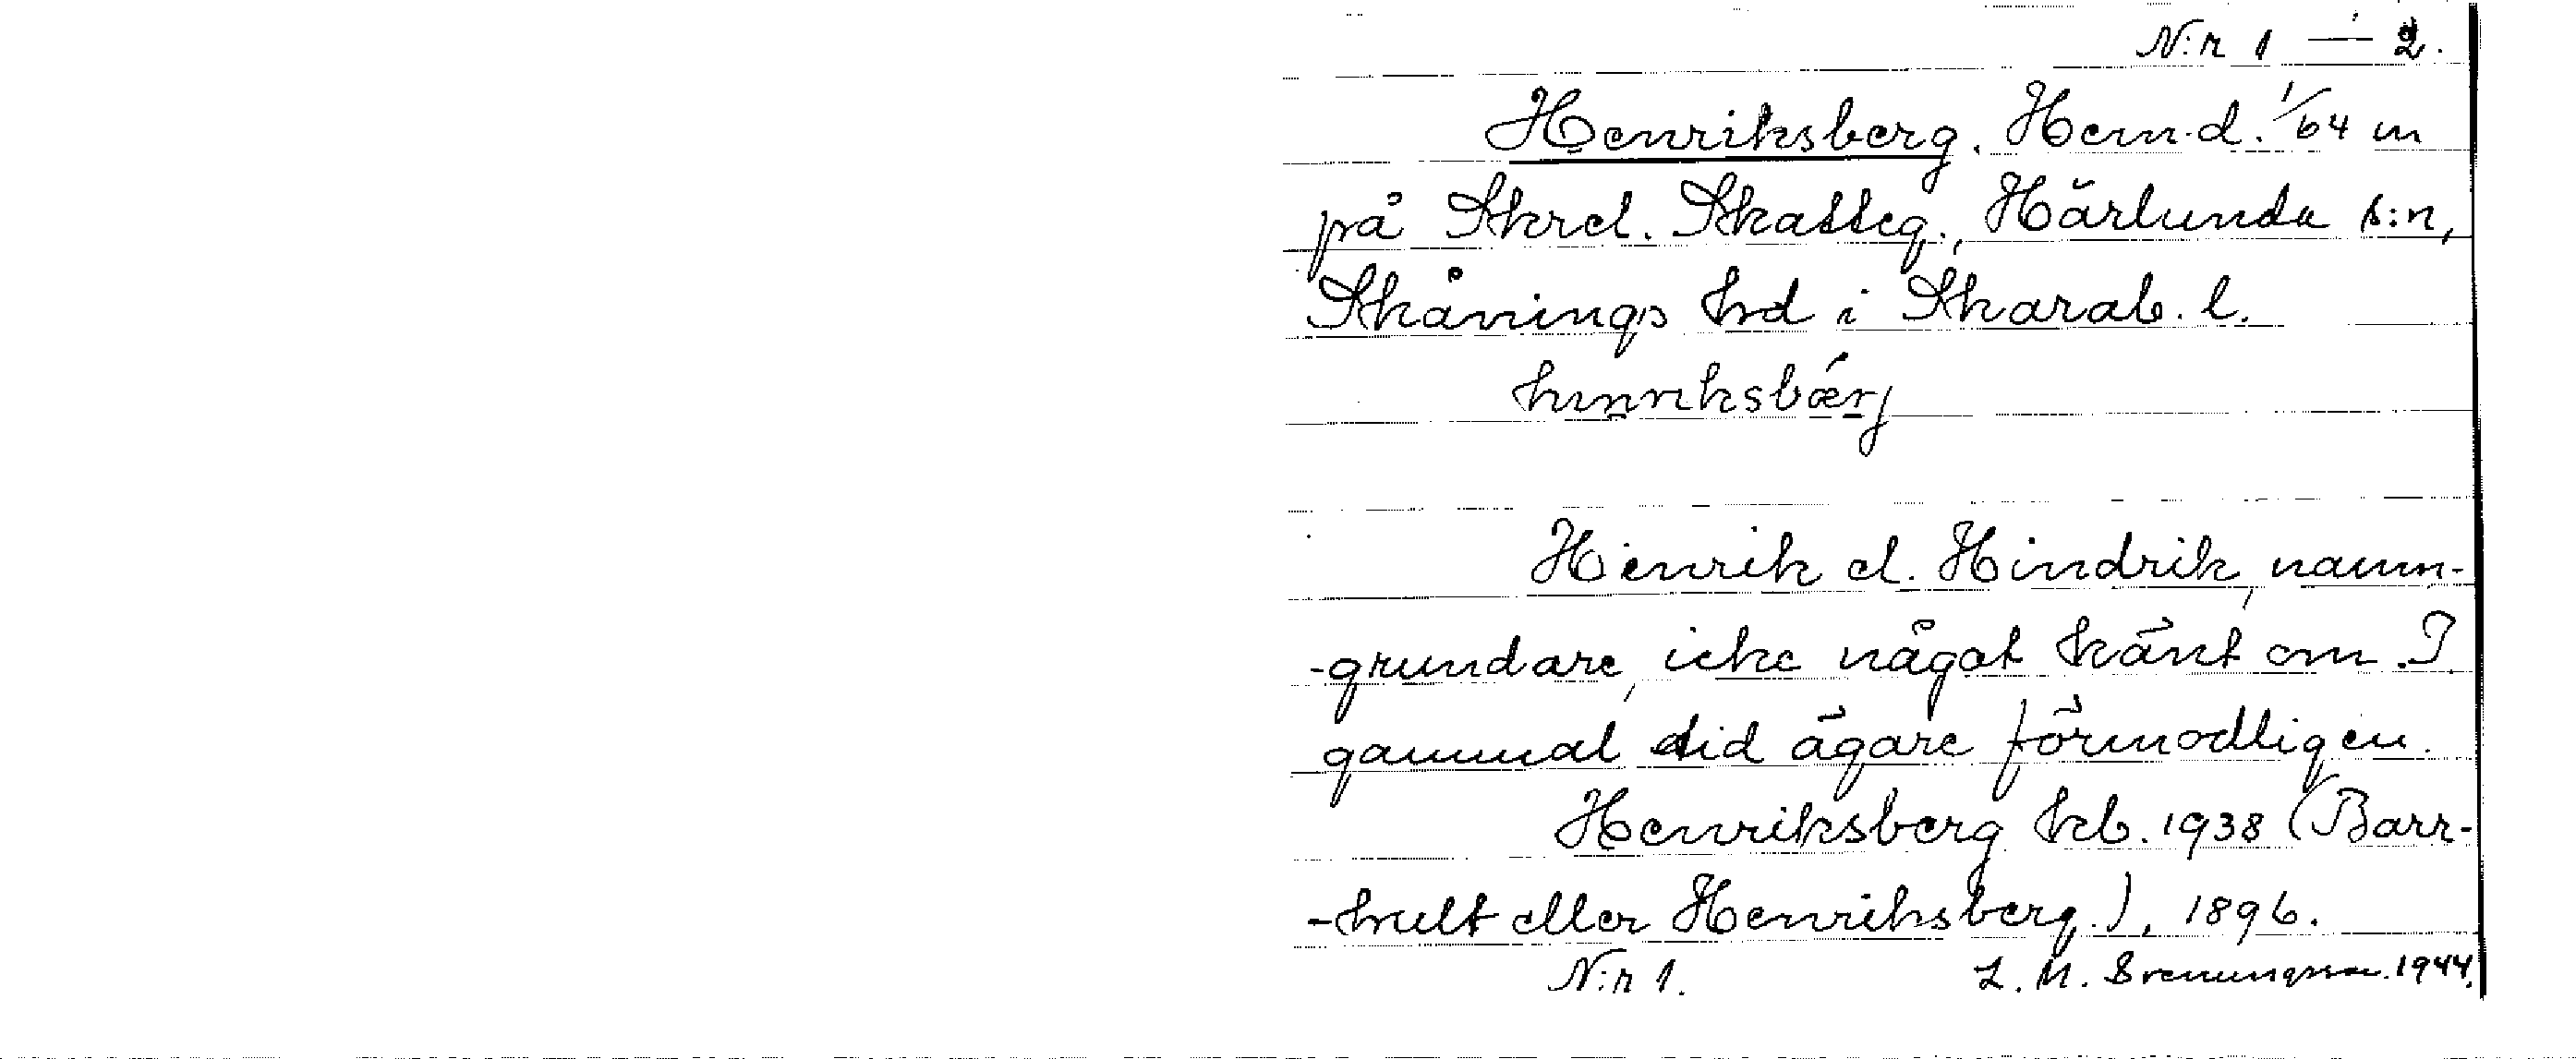 N:r 1 — 2.
Henriksberg. Hem.d. 1/64 m
på Skrel. Skatteg., Härlunda s:n,
Skånings hd i Skarab. l.
hinriksbærj
Henrik el. Hindrik, namn-
-grundare, icke något känt om. I
gammal tid ägare förmodligen.
Henriksberg kb. 1938 (Barr-
-hult eller Henriksberg.), 1896.
N:r 1. L. M. Svenungsson. 1944.